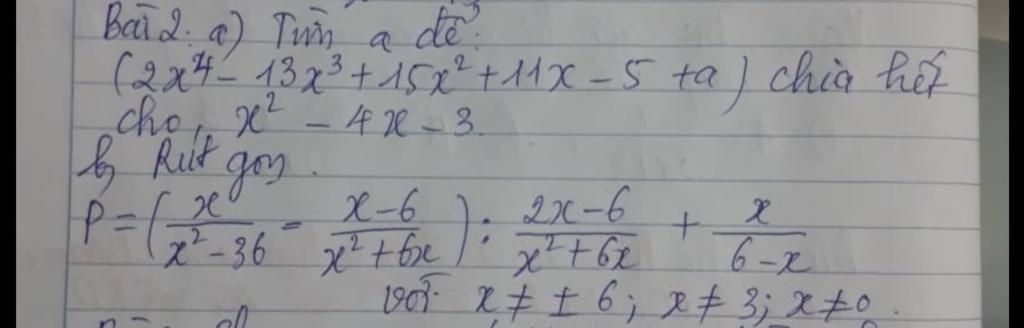 Bài 2: a) Tìm a để:
(2x⁴ - 13x³ + 15x² + 11x - 5 + a) chia hết
cho, x² - 4x - 3.
b, Rút gọn.
P = (x/(x² - 36) - (x-6)/(x² + 6x)) : (2x-6)/(x² + 6x) + x/(6-x)
với x ≠ ± 6; x ≠ 3; x ≠ 0.